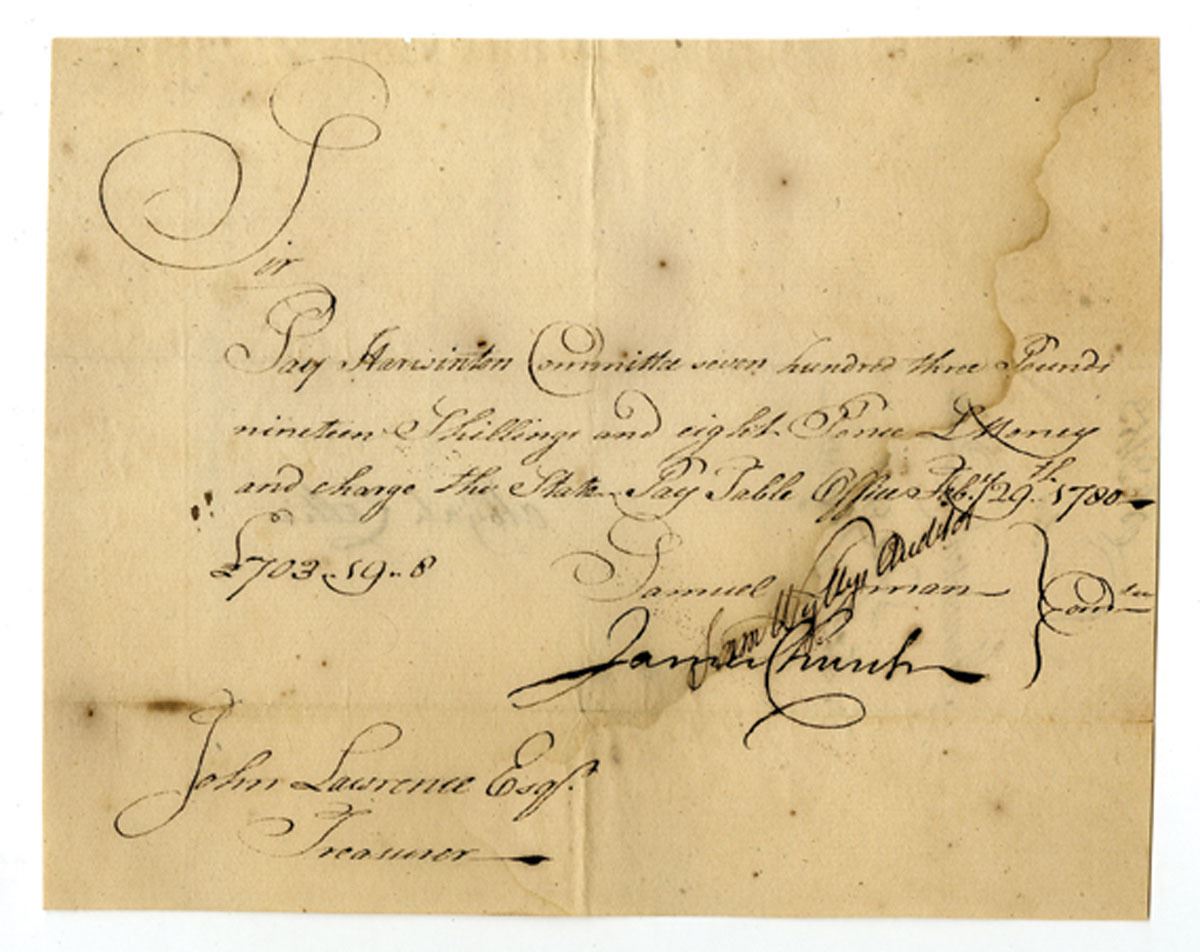 Sir
Pay Harwinton Committee seven hundred three Pounds
nineteen Shillings and eight Pence L Money
and charge the State Pay Table Office Feby 29th 1780
£703..19..8
Samuel Lyman
James Church
Comtee
Sam Wyllys Auditor
John Lawrence Esqr.
Treasurer